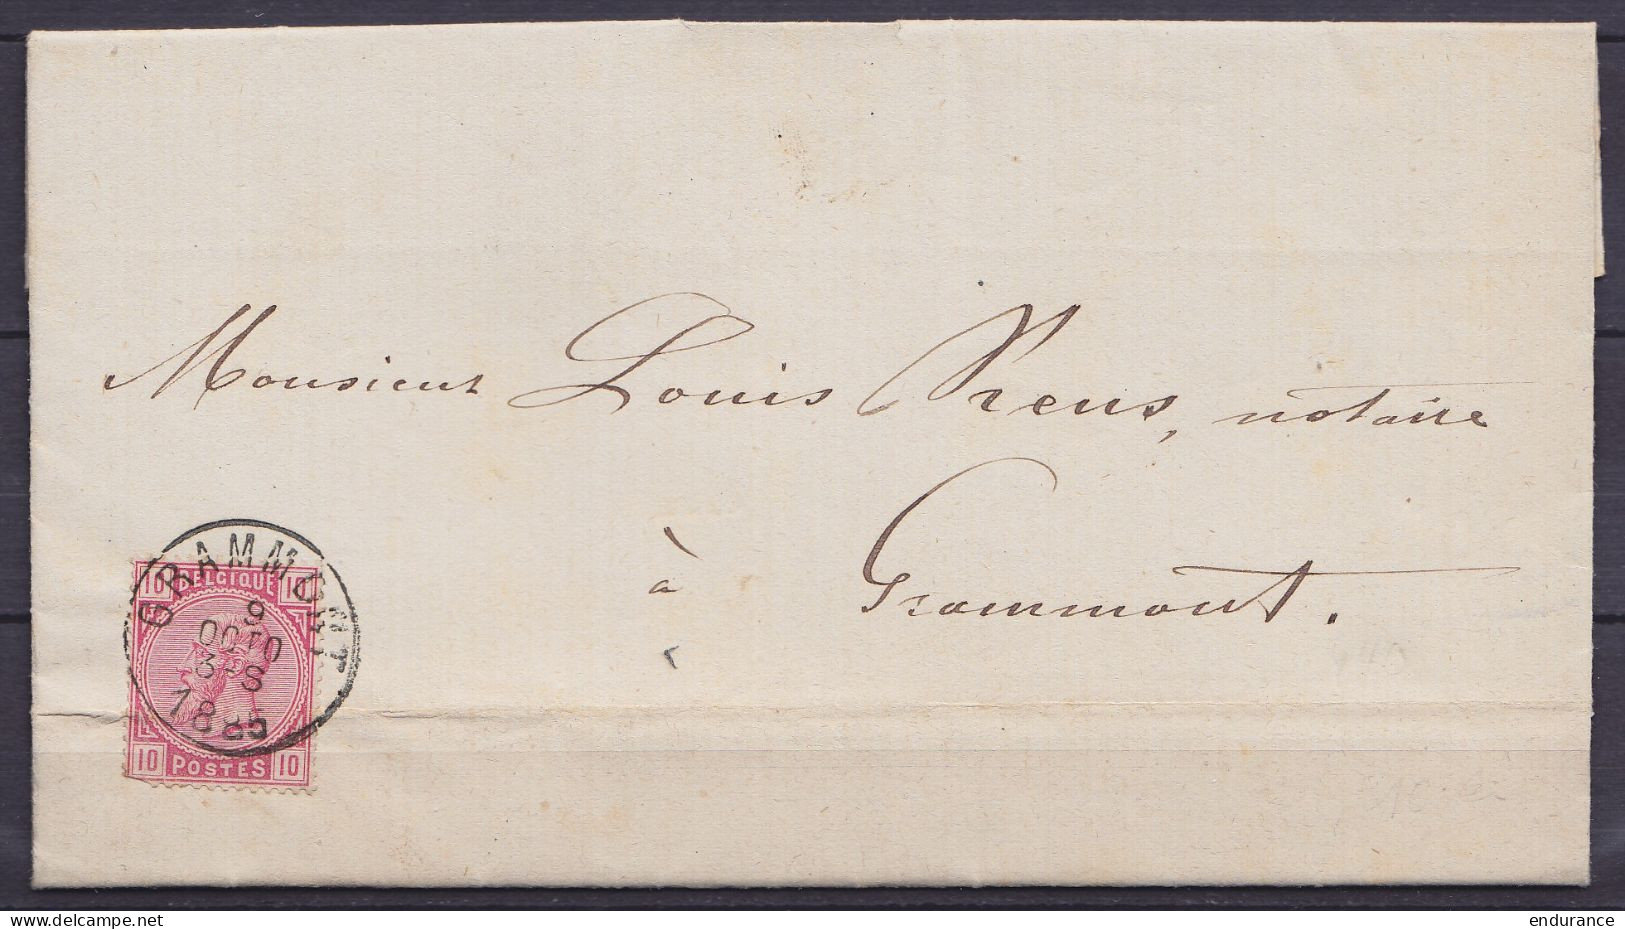 Monsieur Louis Rens, notaire
à
Grammont.
GRAMMONT
9
OCTO
3-S
188
10 BELGIQUE 10
10 POSTES 10
delcampe.net
endurance